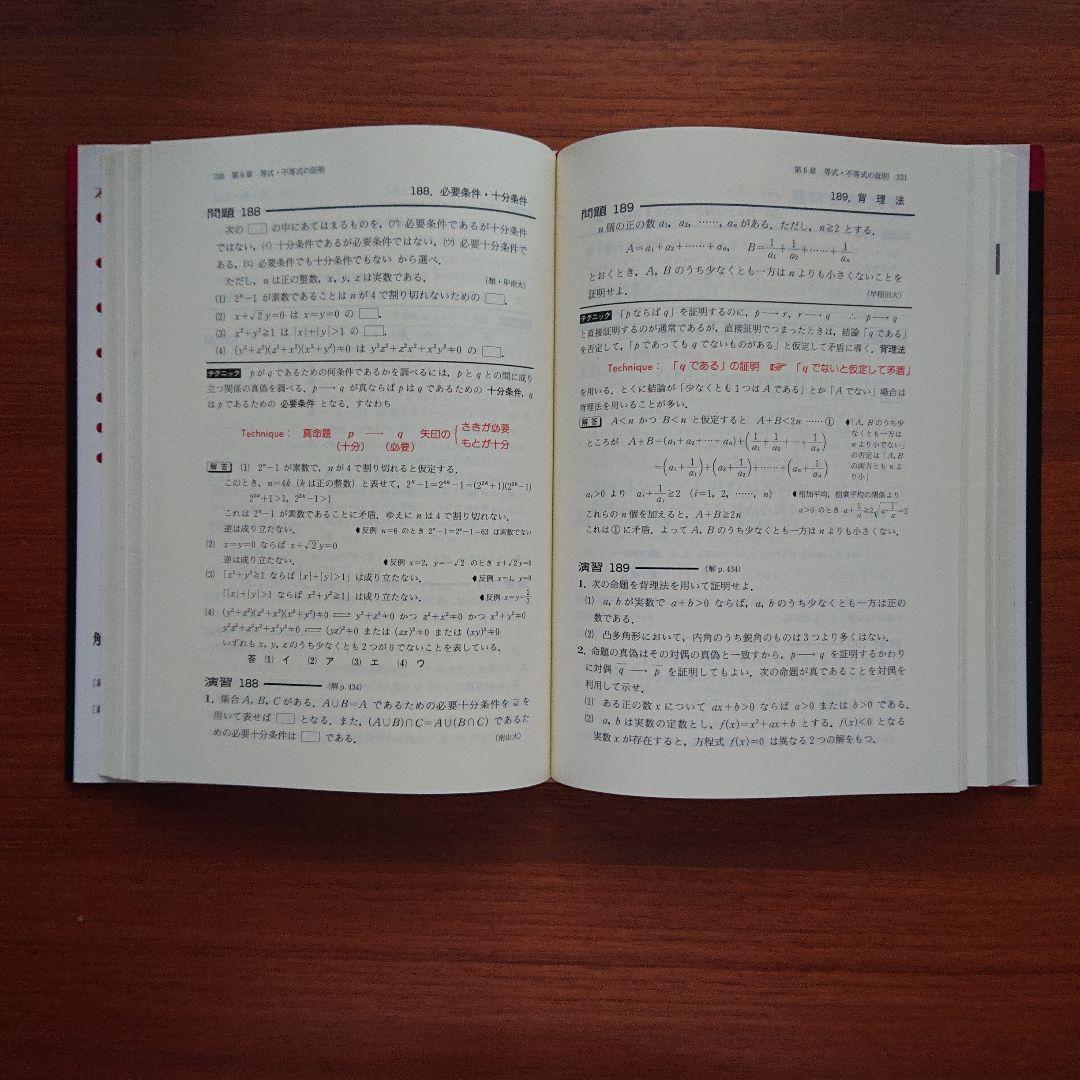 230 第6章 等式・不等式の証明
188. 必要条件・十分条件
問題 188
次の□の中にあてはまるものを,(ア)必要条件であるが十分条件
ではない,(イ)十分条件であるが必要条件ではない,(ウ)必要十分条件で
ある,(エ)必要条件でも十分条件でもない から選べ.
ただし,nは正の整数,x, y, zは実数である. (類・甲南大)
(1) 2ⁿ-1が素数であることはnが4で割り切れないための□.
(2) x+√2y=0 は x=y=0 の □.
(3) x²+y²≧1 は |x|+|y|>1 の □.
(4) (y²+z²)(z²+x²)(x²+y²)≠0 は y²z²+z²x²+x²y²≠0 の □.
テクニック pがqであるための何条件であるかを調べるには,pとqとの間に成り
立つ関係の真偽を調べる.p→q が真ならばpはqであるための 十分条件,q
はpであるための 必要条件 となる.すなわち
Technique: 真命題 p → q 矢印の{さきが必要
(十分) (必要) もとが十分
解答 (1) 2ⁿ-1が素数で,nが4で割り切れると仮定する.
このとき,n=4k (kは正の整数) と表せて,2ⁿ-1=2⁴ᵏ-1=(2²ᵏ+1)(2²ᵏ-1)
2²ᵏ+1>1, 2²ᵏ-1>1
これは 2ⁿ-1 が素数であることに矛盾.ゆえに n は 4 で割り切れない.
逆は成り立たない. 反例 n=6 のとき 2ⁿ-1=2⁶-1=63 は素数でない
(2) x=y=0 ならば x+√2y=0
逆は成り立たない. 反例 x=2, y=-√2 のとき x+√2y=0
(3) 「x²+y²≧1 ならば |x|+|y|>1」は成り立たない. 反例 x=1, y=0
「|x|+|y|>1 ならば x²+y²≧1」は成り立たない. 反例 x=y=2/3
(4) (y²+z²)(z²+x²)(x²+y²)≠0 ⟺ y²+z²≠0 かつ z²+x²≠0 かつ x²+y²≠0
y²z²+z²x²+x²y²≠0 ⟺ (yz)²≠0 または (zx)²≠0 または (xy)²≠0
いずれもx, y, zのうち少なくとも2つが0でないことを表している.
答 (1) イ (2) ア (3) エ (4) ウ
演習 188 (解 p.434)
1. 集合A, B, Cがある.A∪B=A であるための必要十分条件を⊇を
用いて表せば□となる.また,(A∪B)∩C=A∪(B∩C) であるた
めの必要十分条件は□である. (南山大)
第6章 等式・不等式の証明 231
189. 背理法
問題 189
n個の正の数 a₁, a₂, ……, aₙ がある.ただし,n≧2 とする.
A=a₁+a₂+……+aₙ, B=1/a₁+1/a₂+……+1/aₙ
とおくとき,A, Bのうち少なくとも一方はnよりも小さくないことを
証明せよ. (早稲田大)
テクニック 「pならばq」を証明するのに,p→r, r→q ∴ p→q
と直接証明するのが通常であるが,直接証明でつまったときは,結論「qである」
を否定して,「pであってもqでないものがある」と仮定して矛盾に導く.背理法
Technique: 「qである」の証明 ☞ 「qでないと仮定して矛盾」
を用いる.とくに結論が「少なくとも1つはAである」とか「Aでない」場合は
背理法を用いることが多い.
解答 A<n かつ B<n と仮定すると A+B<2n ……①
「A, Bのうち少
なくとも一方は
nより小でない」
の否定は「A, B
の両方ともnよ
り小」
ところが A+B=(a₁+a₂+…+aₙ)+(1/a₁+1/a₂+…+1/aₙ)
=(a₁+1/a₁)+(a₂+1/a₂)+……+(aₙ+1/aₙ)
aᵢ>0 より aᵢ+1/aᵢ≧2 (i=1, 2, ……, n) 相加平均,相乗平均の関係より
これらのn個を加えると,A+B≧2n a>0 のとき a+1/a≧2√(a・1/a)=2
これは①に矛盾.よってA, Bのうち少なくとも一方はnよりも小さくない.
演習 189 (解 p.434)
1. 次の命題を背理法を用いて証明せよ.
(1) a, bが実数で a+b>0 ならば,a, bのうち少なくとも一方は正の
数である.
(2) 凸多角形において,内角のうち鋭角のものは3つより多くはない.
2. 命題の真偽はその対偶の真偽と一致すから,p→q を証明するかわり
に対偶 q̅→p̅ を証明してもよい.次の命題が真であることを対偶を
利用して示せ.
(1) ある正の数xについて ax+b>0 ならば a>0 または b>0 である.
(2) a, bは実数の定数とし,f(x)=x²+ax+b とする.f(x)<0 となる
実数xが存在すると,方程式 f(x)=0 は異なる2つの解をもつ.